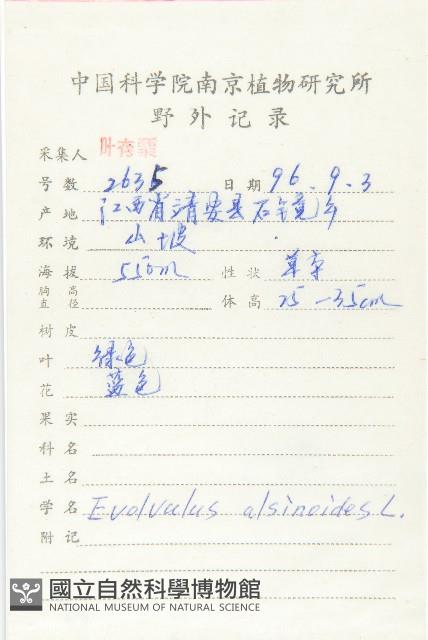 中国科学院南京植物研究所
野外记录
采集人 叶存粟
号数 2635 日期 96.9.3
产地 江西省靖安县石镜乡
环境 山坡
海拔 550m 性状 草本
胸高直径 体高 25-35cm
树皮
叶 绿色
花 蓝色
果实
科名
土名
学名 Evolvulus alsinoides L.
附记
國立自然科學博物館
NATIONAL MUSEUM OF NATURAL SCIENCE